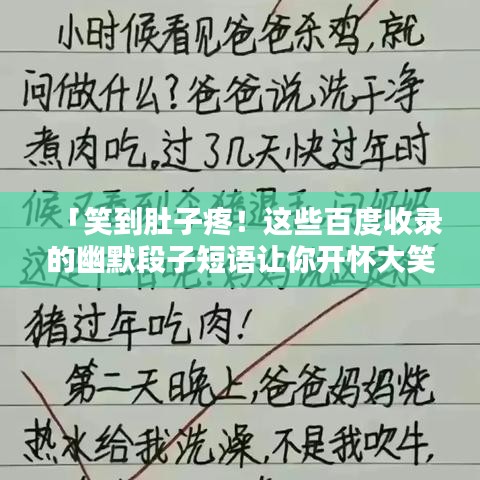 小时候看见爸爸杀鸡,就
问做什么?爸爸说洗干净
煮肉吃。过了几天快过年时
「笑到肚子疼！这些百度收录
的幽默段子短语让你开怀大笑
猪过年吃肉!
第二天晚上,爸爸妈妈烧
热水给我洗澡,不是我吹牛,